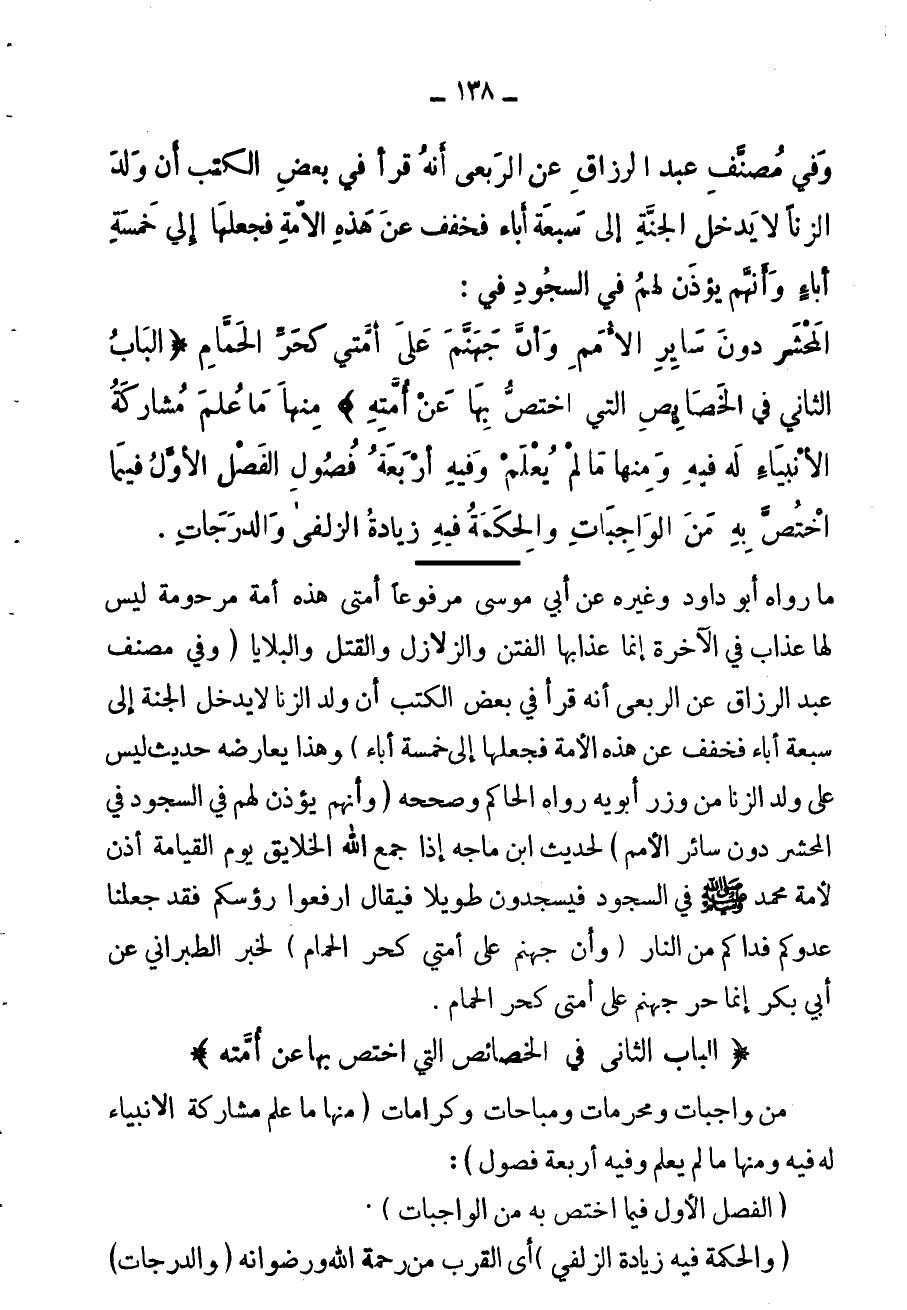 ـ ١٣٨ ـ
وَفي مُصنَّفِ عبد الرزاقِ عن الرَبعى أَنهُ قرأ في بعضِ الكتب أن وَلدَ
الزناَ لا يَدخل الجنَّةِ إلى سَبعَة أباء فخفف عنَ هَذهِ الاُمّةِ فجعلهَا إِلي خَمسَةِ
أباءٍ وَأَنهَّم يؤذَن لهمُ في السجُودِ في :
المَحْشَر دونَ سَايِرِ الأُمَمِ وَأنَّ جَهَنَّمَ عَلىَ أمَّتي كَحَرَّ الحَمَّامِ ﴿ البَابُ
الثاني في الخَصَايِصِ التي اختصُّ بِهَا عَنْ أُمَّتِهِ ﴾ مِنهاَ مَا عُلمَ مُشاركَةُ
الأنْبيَاءِ لَه فيهِ وَمِنها مَا لمْ يُعْلَمْ وَفيهِ أرْبَعَةُ فُصُولٍ الفَصْل الأوَّلُ فيمَا
اخْتُصَّ بِهِ مَنَ الوَاجِبَاتِ والحِكَمَةُ فيهِ زيادةُ الزلفىٰ وَالدرَجَاتِ .
ما رواه أبو داود وغيره عن أبي موسى مرفوعاً أمتى هذه أمة مرحومة ليس
لها عذاب في الآخرة إنما عذابها الفتن والزلازل والقتل والبلايا ( وفي مصنف
عبد الرزاق عن الربعى أنه قرأ في بعض الكتب أن ولد الزنا لايدخل الجنة إلى
سبعة أباء فخفف عن هذه الأمة فجعلها إلى خمسة أباء ) وهذا يعارضه حديث ليس
على ولد الزنا من وزر أبويه رواه الحاكم وصححه ( وأنهم يؤذن لهم في السجود في
المحشر دون سائر الأمم ) لحديث ابن ماجه إذا جمع الله الخلايق يوم القيامة أذن
لأمة محمد ﷺ في السجود فيسجدون طويلا فيقال ارفعوا رؤسكم فقد جعلنا
عدوكم فداكم من النار ( وأن جهنم على أمتي كحر الحمام ) لخبر الطبراني عن
أبي بكر إنما حر جهنم على أمتى كحر الحمام .
﴿ الباب الثانى في الخصائص التي اختص بها عن أُمَّته ﴾
من واجبات ومحرمات ومباحات وكرامات ( منها ما علم مشاركة الانبياء
له فيه ومنها ما لم يعلم وفيه أربعة فصول ) :
( الفصل الأول فيما اختص به من الواجبات ) .
( والحكمة فيه زيادة الزلفي ) أى القرب من رحمة الله ورضوانه ( والدرجات )